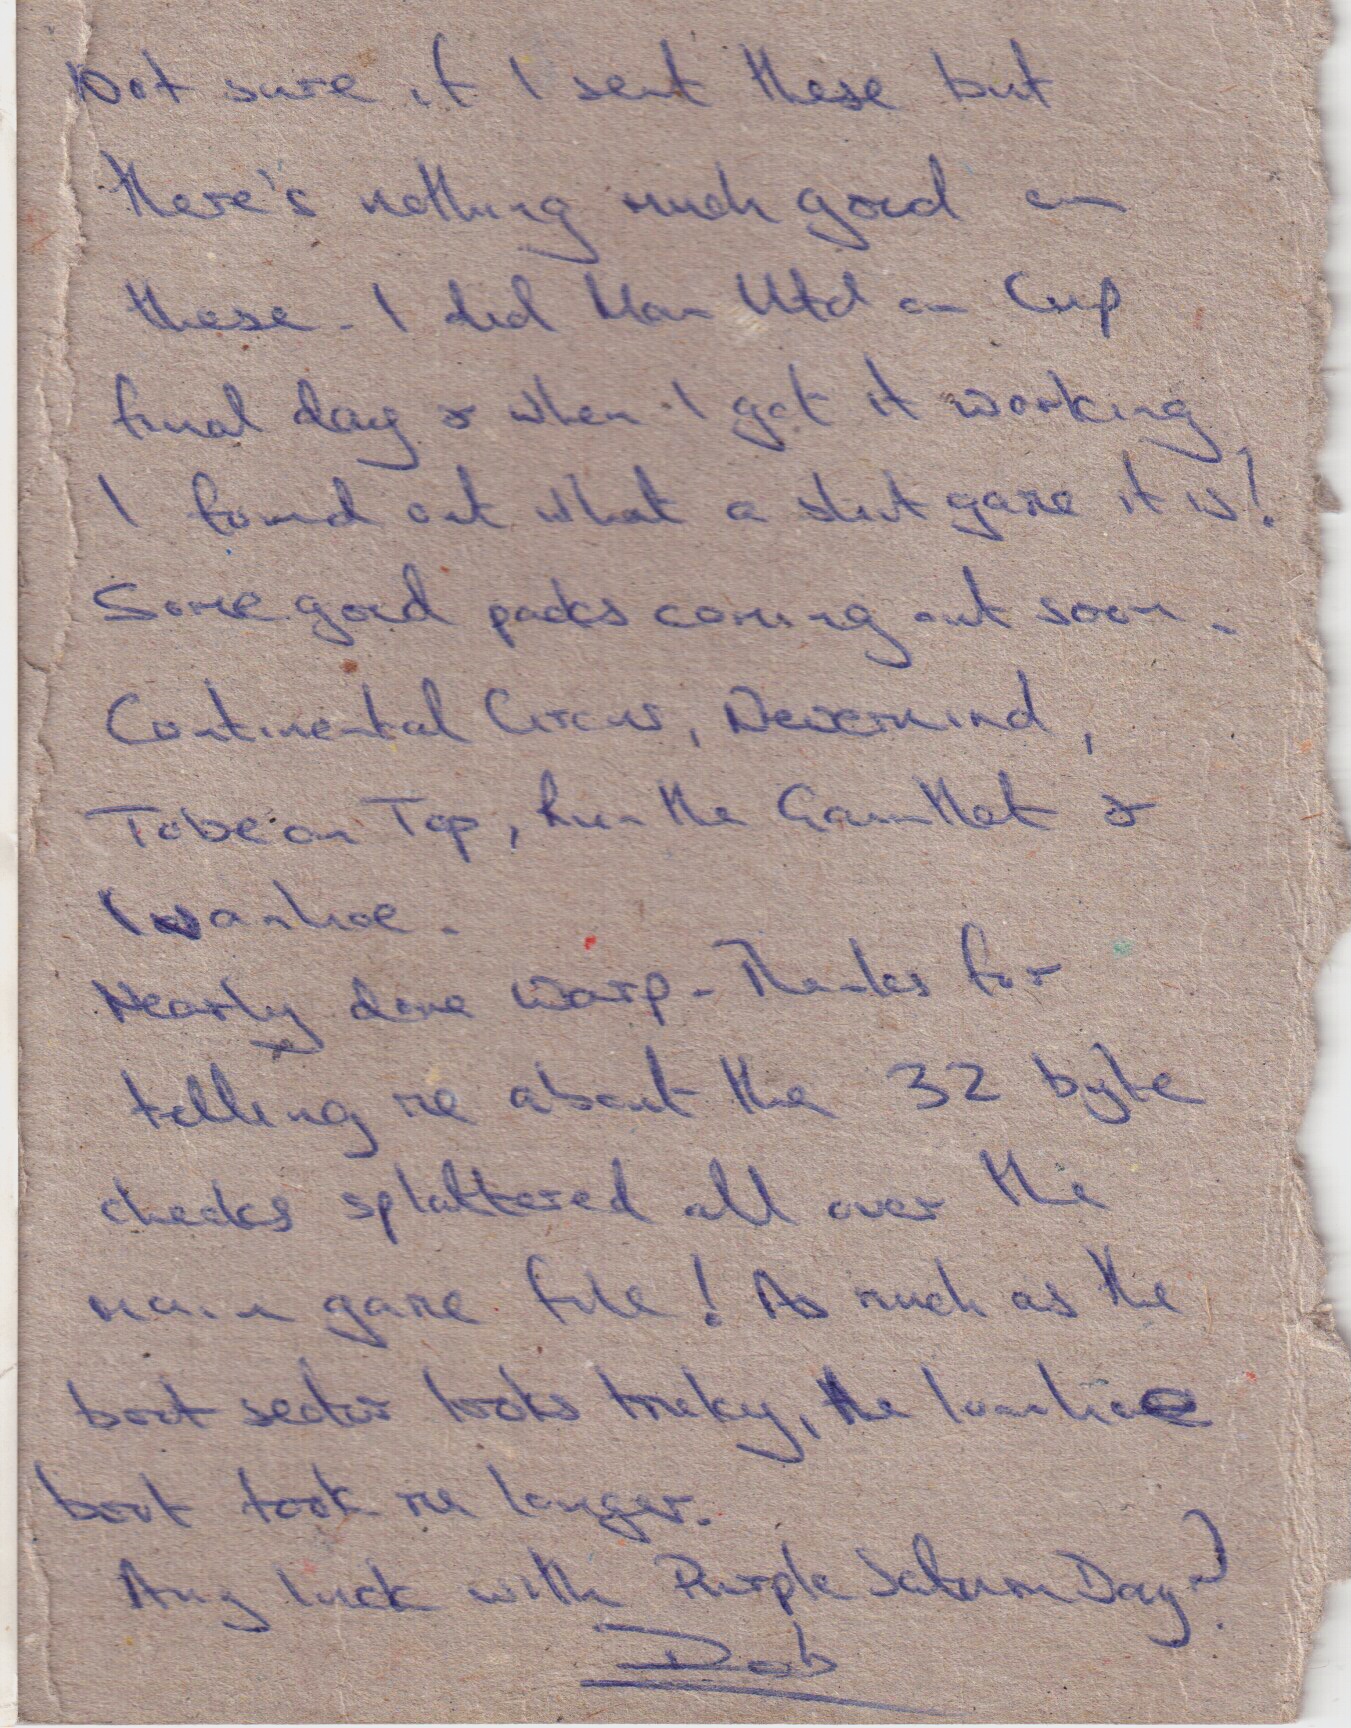 Not sure if I sent these but
there's nothing much good on
these - I did Man Utd on Cup
final day & when I got it working
I found out what a shit game it is!
Some good packs coming out soon -
Continental Circus, Nevermind,
To be on Top, Run the Gauntlet &
Ivanhoe.
Nearly done Warp - Thanks for
telling me about the 32 byte
checks splattered all over the
main game file! As much as the
boot sector looks tricky, the Ivanhoe
boot took me longer.
Any luck with Purple Saturn Day?
Dob